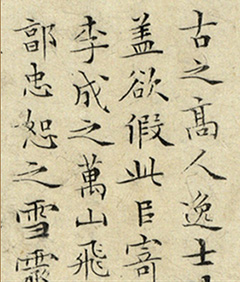 古之高人逸士
盖欲假此自寄
李成之萬山飛
郭忠恕之雪霽